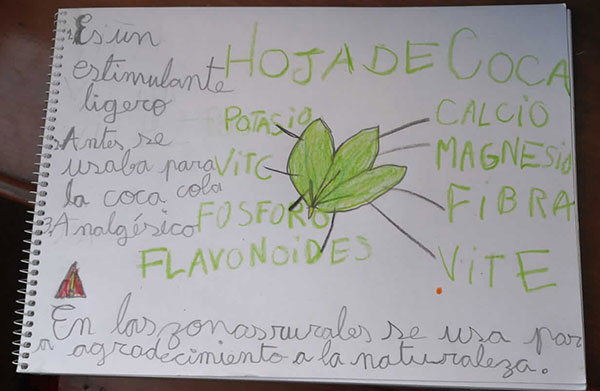 HOJA DE COCA
1. Es un
estimulante
ligero
2. Antes se
usaba para
la coca cola
3. Analgésico
POTASIO
VIT C
FOSFORO
FLAVONOIDES
CALCIO
MAGNESIO
FIBRA
VIT E
En las zonas rurales se usa par
a agradecimiento a la naturaleza.